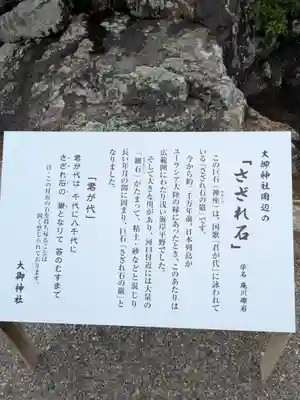 大御神社周辺の
「さざれ石」
学名 庵川礫岩
この巨石「神座」は、国歌「君が代」に詠われて
いる「さざれ石の巌」です。
今から約一千万年前、日本列島が
ユーラシア大陸の縁にあったとき、このあたりは
広範囲にわたり浅い海岸平野でした。
そして大きな川があり、河口付近には大量の
「細石」がたまって、粘土・砂などと混じり
長い年月の間に固まり、巨石「さざれ石の巌」と
なりました。
「君が代」
君が代は 千代に八千代に
さざれ石の 巌となりて 苔のむすまで
注・この付近の石を持ち帰ることは
固く禁じられております。
大御神社